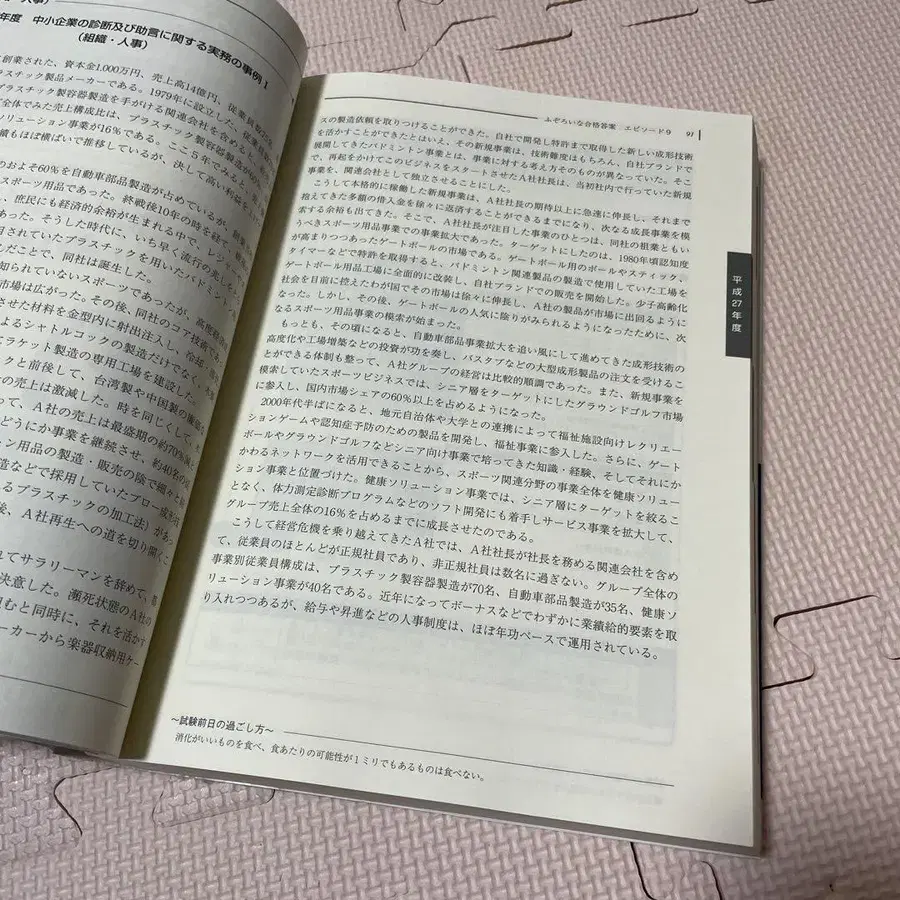 年度 中小企業の診断及び助言に関する実務の事例Ⅰ
(組織・人事)
創業された、資本金1,000万円、売上高14億円、従業員数
プラスチック製品メーカーである。1979年に設立した、
プラスチック製容器製造を手がける関連会社を含める
全体でみた売上構成比は、プラスチック製容器製造が
リューション事業が16%である。ここ5年でみると、
績もほぼ横ばいで推移しているが、決して高い利益を
のおよそ60%を自動車部品製造が占めているが、
スポーツ用品であった。終戦後10年の時を経て、
、庶民にも経済的余裕が生まれる中で、レジャー
あった。そうした時代に、いち早く流行の兆し
用されていたプラスチックを用いたバドミント
んだことで、同社は誕生した。
知られていないスポーツであったが、高度
市場は広がった。その後、同社のコア技術で
させた材料を金型内に射出注入し、冷却・
によるシャトルコックの製造だけでなく、
ラケット製造の専用工場を建設した。
クと前後して、台湾製や中国製の
の売上は激減した。時を同じくして、
って、A社の売上は最盛期の約70%減と
どうにか事業を継続させ、約40名の
ョン用品の製造・販売の陰で細々と
造などで採用していたブロー成形
るプラスチックの加工法)があっ
後、A社再生への道を切り開くこ
れてサラリーマンを辞めて、
決意した。瀕死状態のA社の
組むと同時に、それを活かす
メーカーから楽器収納用ケー
ふぞろいな合格答案 エピソード9 97
スの製造依頼を取りつけることができた。自社で開発し特許まで取得した新しい成形技術
を活かすことができたとはいえ、その新規事業は、技術難度はもちろん、自社ブランドで
展開してきたバドミントン事業とは、事業に対する考え方そのものが異なっていた。そこ
で、再起をかけてこのビジネスをスタートさせたA社社長は、当初社内で行っていた新規
事業を、関連会社として独立させることにした。
こうして本格的に稼働した新規事業は、A社社長の期待以上に急速に伸長し、それまで
抱えてきた多額の借入金を徐々に返済することができるまでになり、次なる成長事業を模
索する余裕も出てきた。そこで、A社社長が注目した事業のひとつは、同社の祖業ともい
うべきスポーツ用品事業での事業拡大であった。ターゲットにしたのは、1980年頃認知度
が高まりつつあったゲートボールの市場である。ゲートボール用のボールやスティック、
タイマーなどで特許を取得すると、バドミントン関連製品の製造で使用していた工場を
ゲートボール用品工場に全面的に改装し、自社ブランドでの販売を開始した。少子高齢化
社会を目前に控えたわが国でその市場は徐々に伸長し、A社の製品が市場に出回るように
なった。しかし、その後、ゲートボールの人気に陰りがみられるようになったために、次
なるスポーツ用品事業の模索が始まった。
もっとも、その頃になると、自動車部品事業拡大を追い風にして進めてきた成形技術の
高度化や工場増築などの投資が功を奏し、バスタブなどの大型成形製品の注文を受けるこ
とができる体制も整って、A社グループの経営は比較的順調であった。また、新規事業を
模索していたスポーツビジネスでは、シニア層をターゲットにしたグラウンドゴルフ市場
に参入し、国内市場シェアの60%以上を占めるようになった。
2000年代半ばになると、地元自治体や大学との連携によって福祉施設向けレクリエー
ションゲームや認知症予防のための製品を開発し、福祉事業に参入した。さらに、ゲート
ボールやグラウンドゴルフなどシニア向け事業で培ってきた知識・経験、そしてそれにか
かわるネットワークを活用できることから、スポーツ関連分野の事業全体を健康ソリュー
ション事業と位置づけた。健康ソリューション事業では、シニア層にターゲットを絞るこ
となく、体力測定診断プログラムなどのソフト開発にも着手しサービス事業を拡大して、
グループ売上全体の16%を占めるまでに成長させたのである。
こうして経営危機を乗り越えてきたA社では、A社社長が社長を務める関連会社を含め
て、従業員のほとんどが正規社員であり、非正規社員は数名に過ぎない。グループ全体の
事業別従業員構成は、プラスチック製容器製造が70名、自動車部品製造が35名、健康ソ
リューション事業が40名である。近年になってボーナスなどでわずかに業績給的要素を取
り入れつつあるが、給与や昇進などの人事制度は、ほぼ年功ベースで運用されている。
平成27年度
〜試験前日の過ごし方〜
消化がいいものを食べ、食あたりの可能性が1ミリでもあるものは食べない。